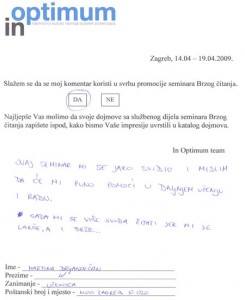 in optimum
Zagreb, 14.04 – 19.04.2009.
Slažem se da se moj komentar koristi u svrhu promocije seminara Brzog
čitanja.
DA NE
Najljepše Vas molimo da svoje dojmove sa službenog dijela seminara Brzog
čitanja zapišete ispod, kako bismo Vaše impresije uvrstili u katalog dojmova.
In Optimum team
OVAJ SEMINAR MI SE JAKO SVIDIO I MISLIM
DA ĆE MI PUNO POMOĆI U DALJNJEM UČENJU
I RADU.
SADA MI SE VIŠE SVIĐA ČITATI JER MI JE
LAKŠE, A I BRŽE...
Ime - MARTINA
Prezime -
Zanimanje - UČENICA
Poštanski broj i mjesto - NOVI ZAGREB 10 020